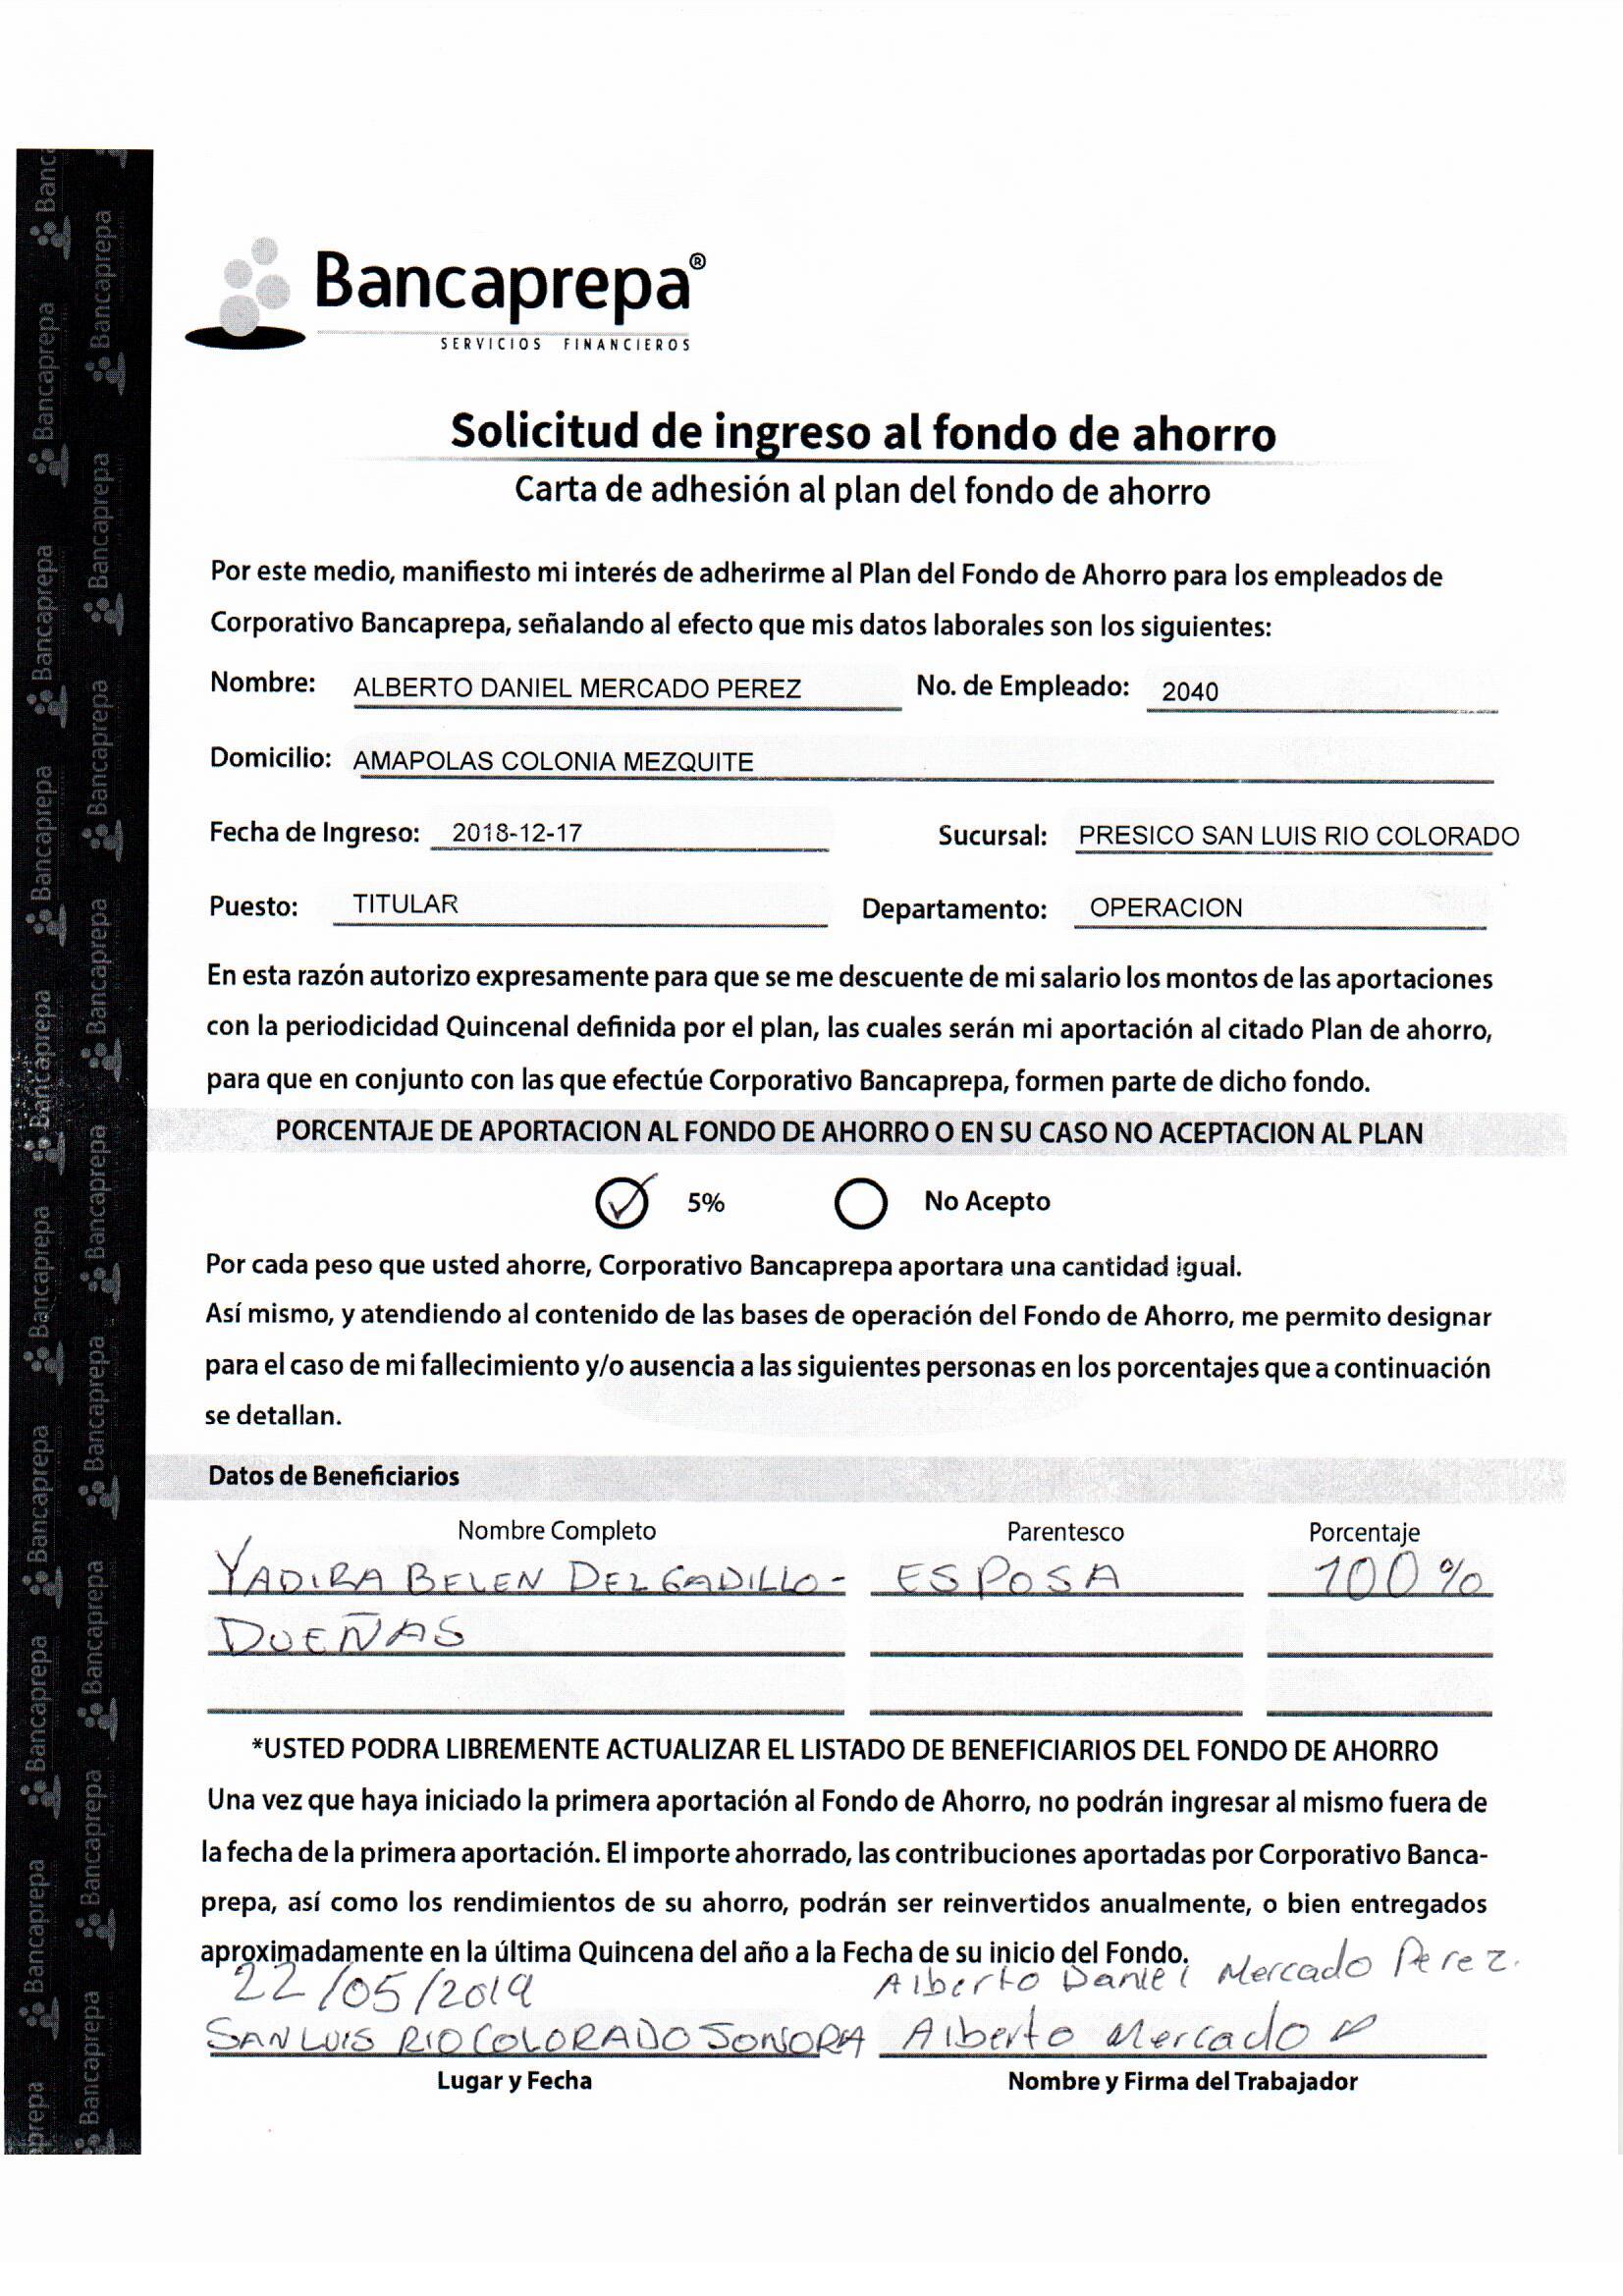 Bancaprepa®
SERVICIOS FINANCIEROS
Solicitud de ingreso al fondo de ahorro
Carta de adhesión al plan del fondo de ahorro
Por este medio, manifiesto mi interés de adherirme al Plan del Fondo de Ahorro para los empleados de
Corporativo Bancaprepa, señalando al efecto que mis datos laborales son los siguientes:
Nombre: ALBERTO DANIEL MERCADO PEREZ No. de Empleado: 2040
Domicilio: AMAPOLAS COLONIA MEZQUITE
Fecha de Ingreso: 2018-12-17 Sucursal: PRESICO SAN LUIS RIO COLORADO
Puesto: TITULAR Departamento: OPERACION
En esta razón autorizo expresamente para que se me descuente de mi salario los montos de las aportaciones
con la periodicidad Quincenal definida por el plan, las cuales serán mi aportación al citado Plan de ahorro,
para que en conjunto con las que efectúe Corporativo Bancaprepa, formen parte de dicho fondo.
PORCENTAJE DE APORTACION AL FONDO DE AHORRO O EN SU CASO NO ACEPTACION AL PLAN
5% No Acepto
Por cada peso que usted ahorre, Corporativo Bancaprepa aportara una cantidad igual.
Así mismo, y atendiendo al contenido de las bases de operación del Fondo de Ahorro, me permito designar
para el caso de mi fallecimiento y/o ausencia a las siguientes personas en los porcentajes que a continuación
se detallan.
Datos de Beneficiarios
Nombre Completo Parentesco Porcentaje
YADIRA BELEN DELGADILLO- ESPOSA 100%
DUEÑAS
*USTED PODRA LIBREMENTE ACTUALIZAR EL LISTADO DE BENEFICIARIOS DEL FONDO DE AHORRO
Una vez que haya iniciado la primera aportación al Fondo de Ahorro, no podrán ingresar al mismo fuera de
la fecha de la primera aportación. El importe ahorrado, las contribuciones aportadas por Corporativo Banca-
prepa, así como los rendimientos de su ahorro, podrán ser reinvertidos anualmente, o bien entregados
aproximadamente en la última Quincena del año a la Fecha de su inicio del Fondo.
22/05/2019 Alberto Daniel Mercado Perez.
SAN LUIS RIO COLORADO SONORA Alberto Mercado
Lugar y Fecha Nombre y Firma del Trabajador